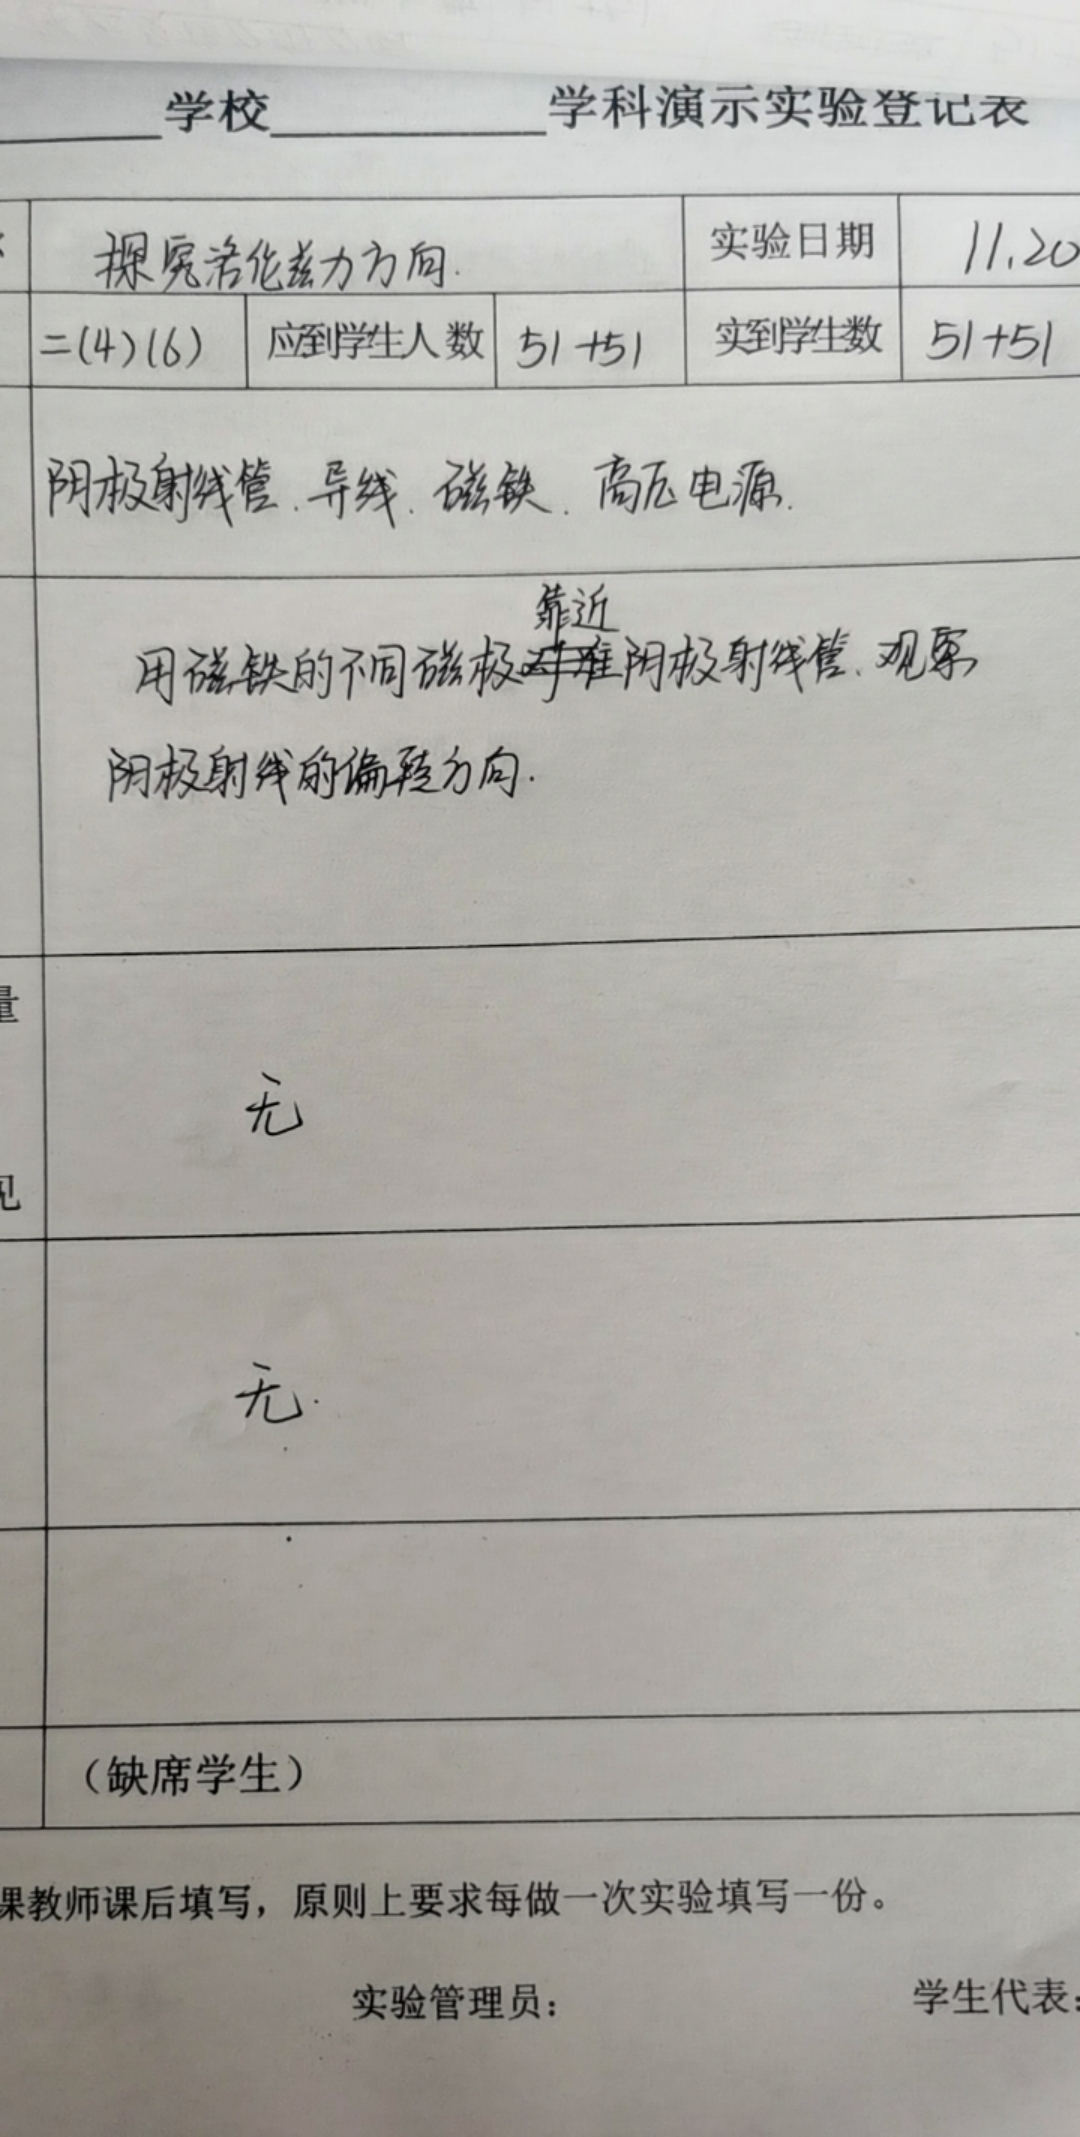 学校 学科演示实验登记表
探究洛伦兹力方向. 实验日期 11.20
二(4)(6) 应到学生人数 51+51 实到学生数 51+51
阴极射线管、导线、磁铁、高压电源.
靠近
用磁铁的不同磁极对准阴极射线管、观察
阴极射线的偏转方向.
量
无
见
无.
(缺席学生)
课教师课后填写，原则上要求每做一次实验填写一份。
实验管理员： 学生代表：